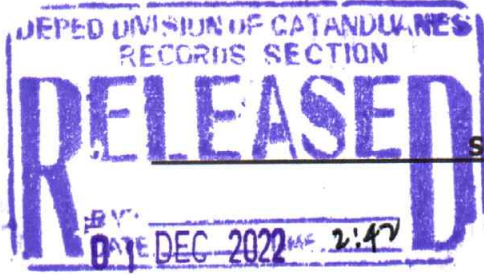 DEPED DIVISION OF CATANDUANES
RECORDS SECTION
RELEASED
S
BY:
DATE 01 DEC 2022 TIME 2:42